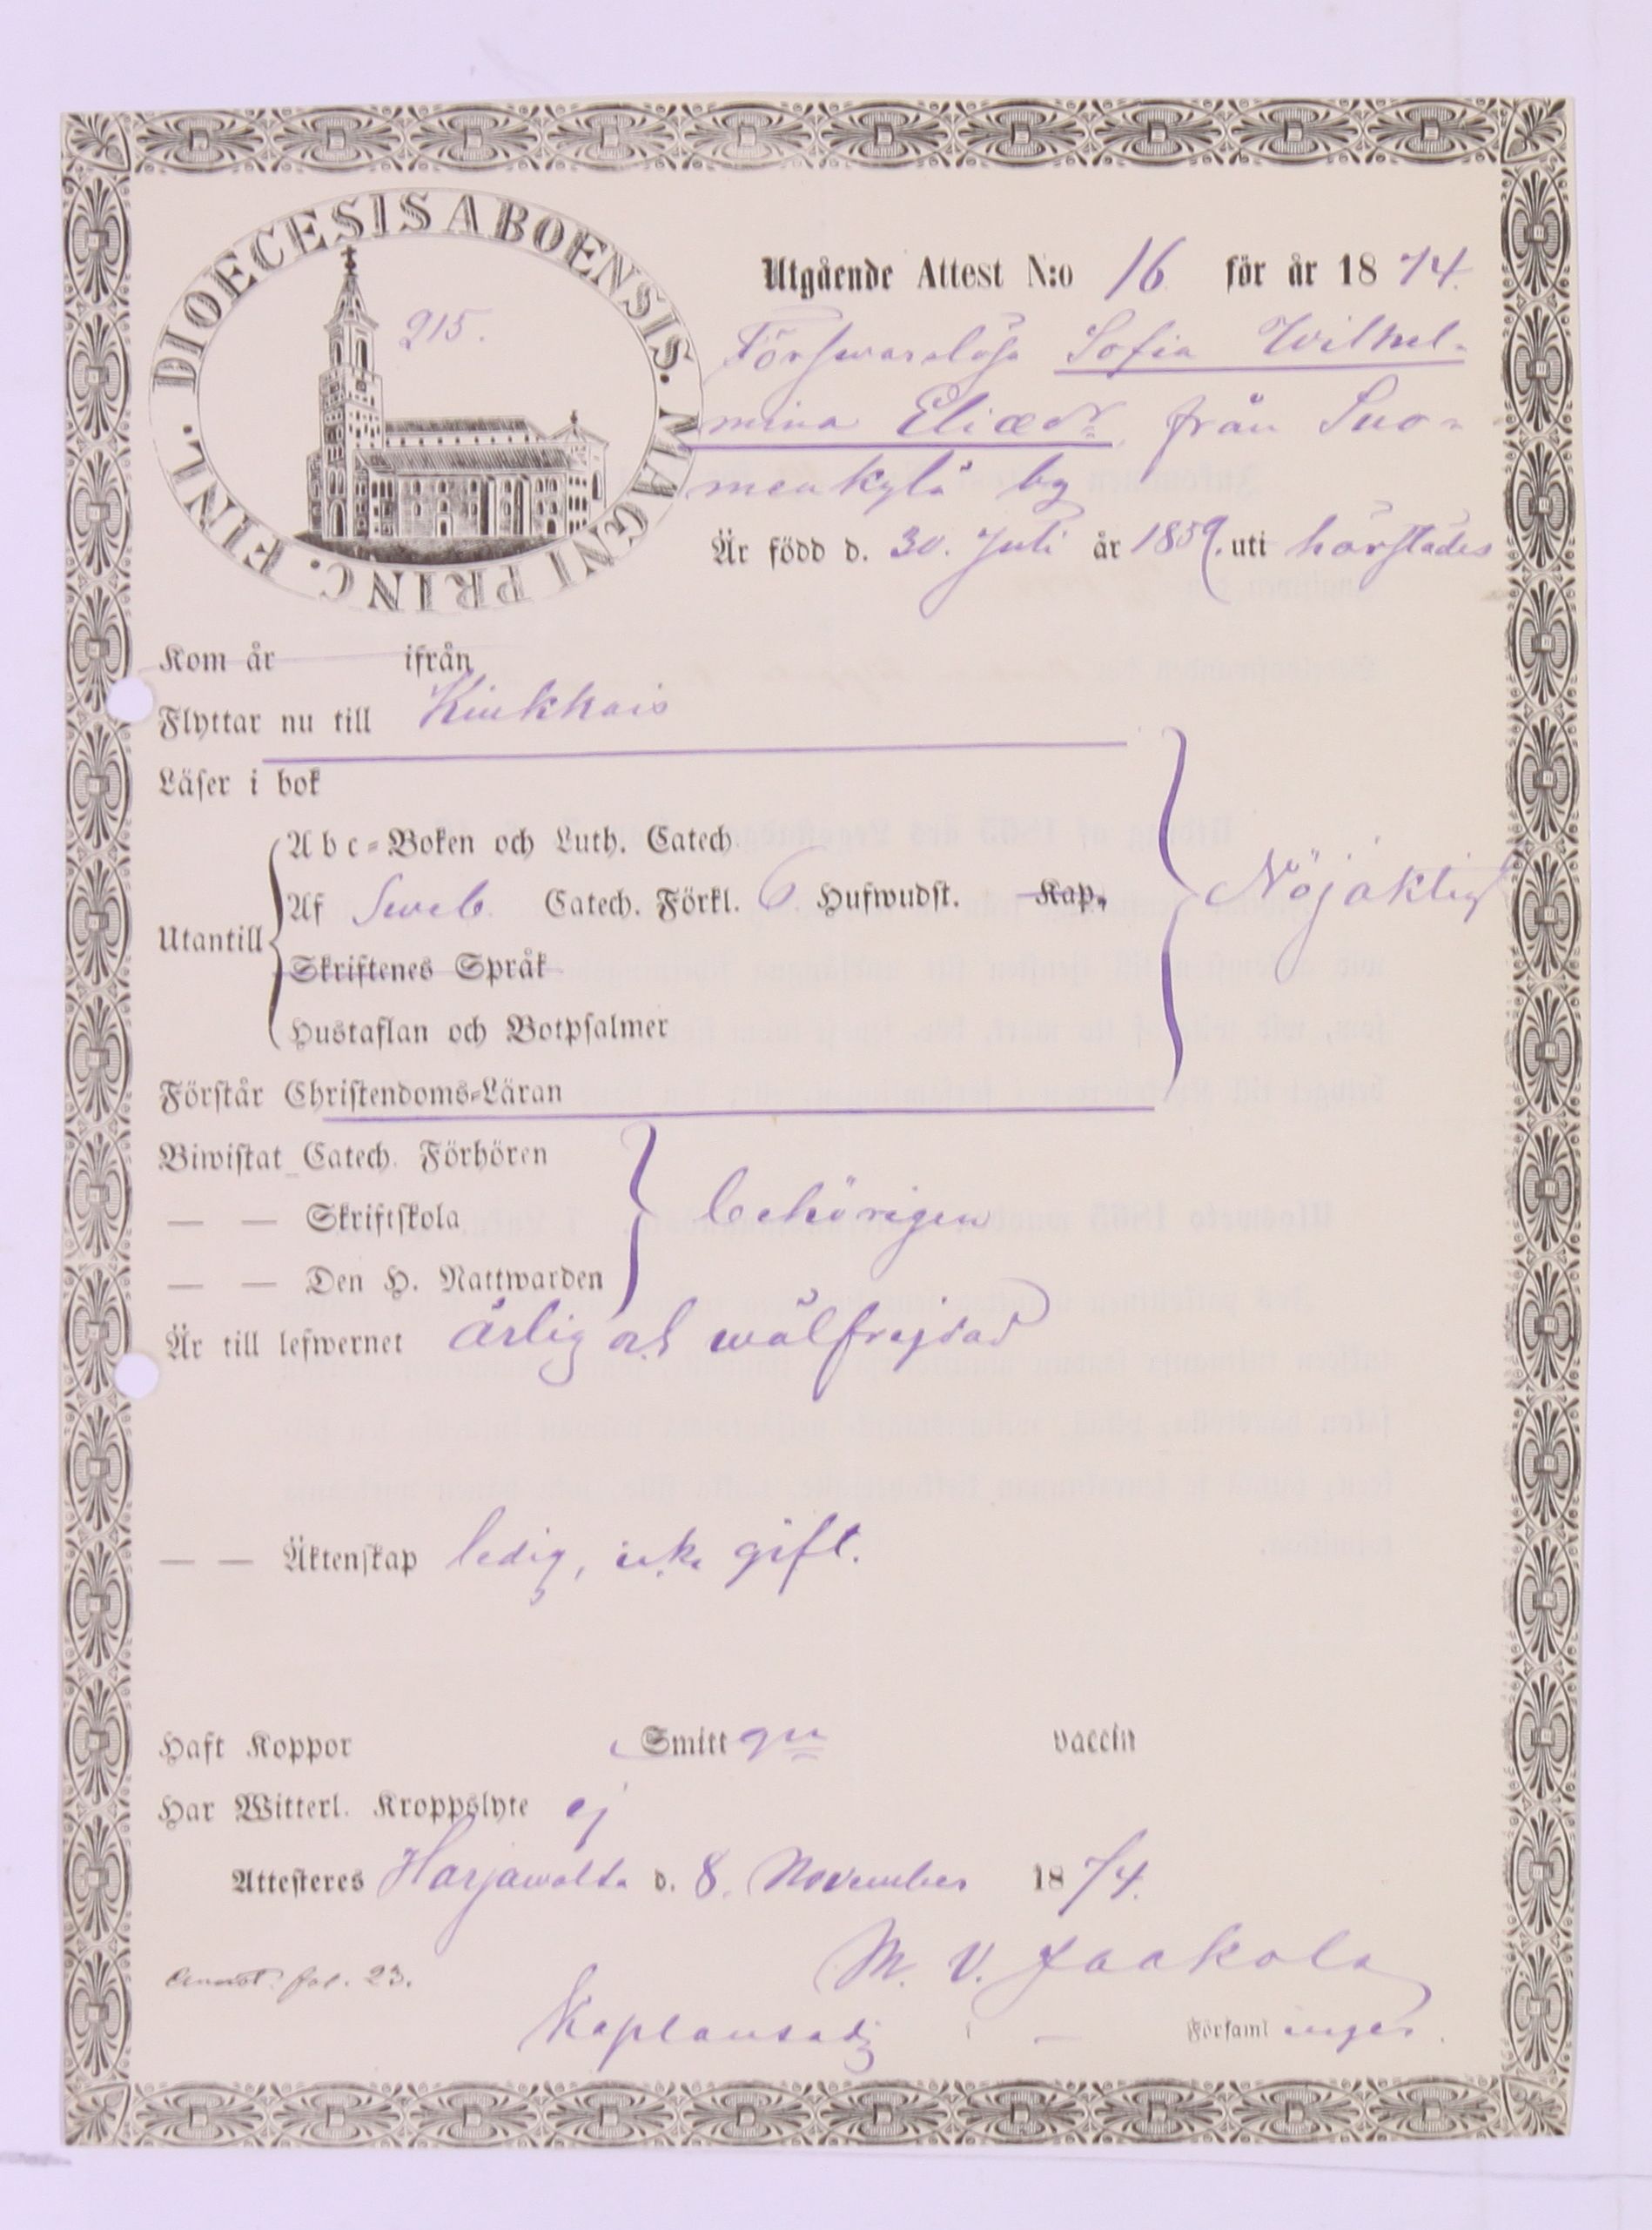 DIOECESIS ABOENSIS. MAGNI PRINC. FINL.
215.
Utgående Attest N:o 16 för år 1874.
Förswarslösa Sofia Wilhel-
mina Eliædr, från Suo-
menkylä by
Är född d. 30. Juli år 1859. uti härstädes
Kom år ifrån
Flyttar nu till Kiukkais
Läser i bok
Abc-Boken och Luth. Catech.
Af Sweb. Catech. Förkl. 6 Hufwudst. Kap.
Nöjaktigt
Utantill
Skriftenes Språk
Hustaflan och Botpsalmer
Förstår Christendoms-Läran
Biwistat Catech. Förhören
— — Skriftskola
behörigen
— — Den H. Nattwarden
Är till lefwernet ärlig och wälfrejdad
— — Äktenskap ledig, icke gift.
Haft Koppor Smitt gn vaccin
Har Witterl. Kroppslyte ej
Attesteres Harjawalta d. 8. November 1874.
M. V. Jaakola
Annot. fol. 23.
Kaplansadj i — Församlingen.